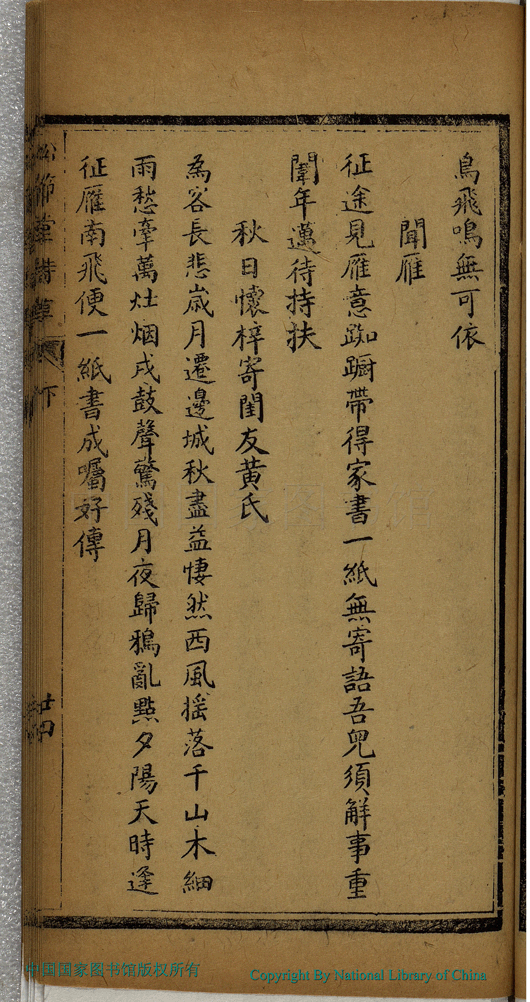 鳥飛鳴無可依
聞雁
征途見雁意踟蹰帶得家書一紙無寄語吾兒須解事重
闈年邁待持扶
秋日懷梓寄閨友黄氏
為客長悲歲月遷邊城秋盡益悽然西風摇落千山木細
雨愁牽萬灶烟戍鼓聲驚殘月夜歸鴉亂點夕陽天時逢
征雁南飛便一紙書成囑好傳
下
廿四
中国国家图书馆版权所有
Copyright By National Library of China